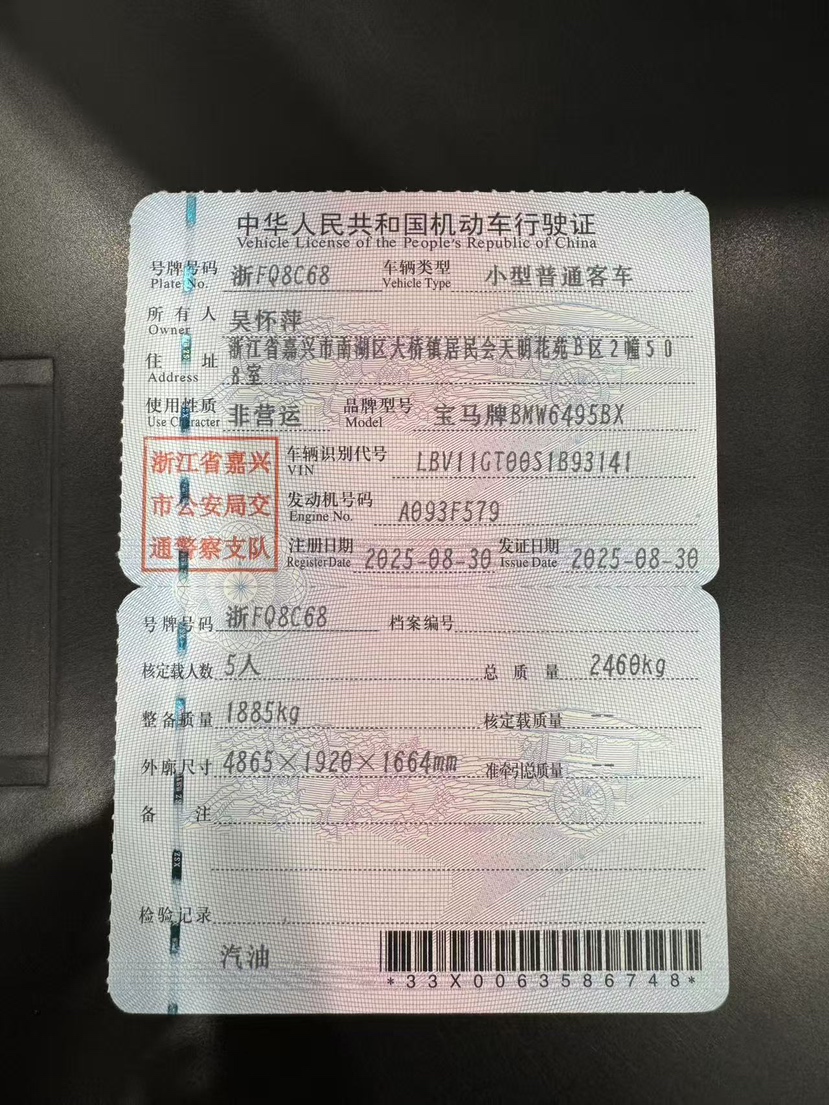 中华人民共和国机动车行驶证
Vehicle License of the People's Republic of China
号牌号码 浙FQ8C68 车辆类型 小型普通客车
Plate No. Vehicle Type
所有人 吴怀萍
Owner
住址 浙江省嘉兴市南湖区大桥镇居民会天明花苑B区2幢50
Address 8室
使用性质 非营运 品牌型号 宝马牌BMW6495BX
Use Character Model
浙江省嘉兴
市公安局交
通警察支队
车辆识别代号 LBV11GT00S1B93141
VIN
发动机号码 A093F579
Engine No.
注册日期 2025-08-30 发证日期 2025-08-30
Register Date Issue Date
号牌号码 浙FQ8C68 档案编号
核定载人数 5人 总质量 2460kg
整备质量 1885kg 核定载质量 --
外廓尺寸 4865×1920×1664mm 准牵引总质量 --
备注
检验记录
汽油
*33X0063586748*